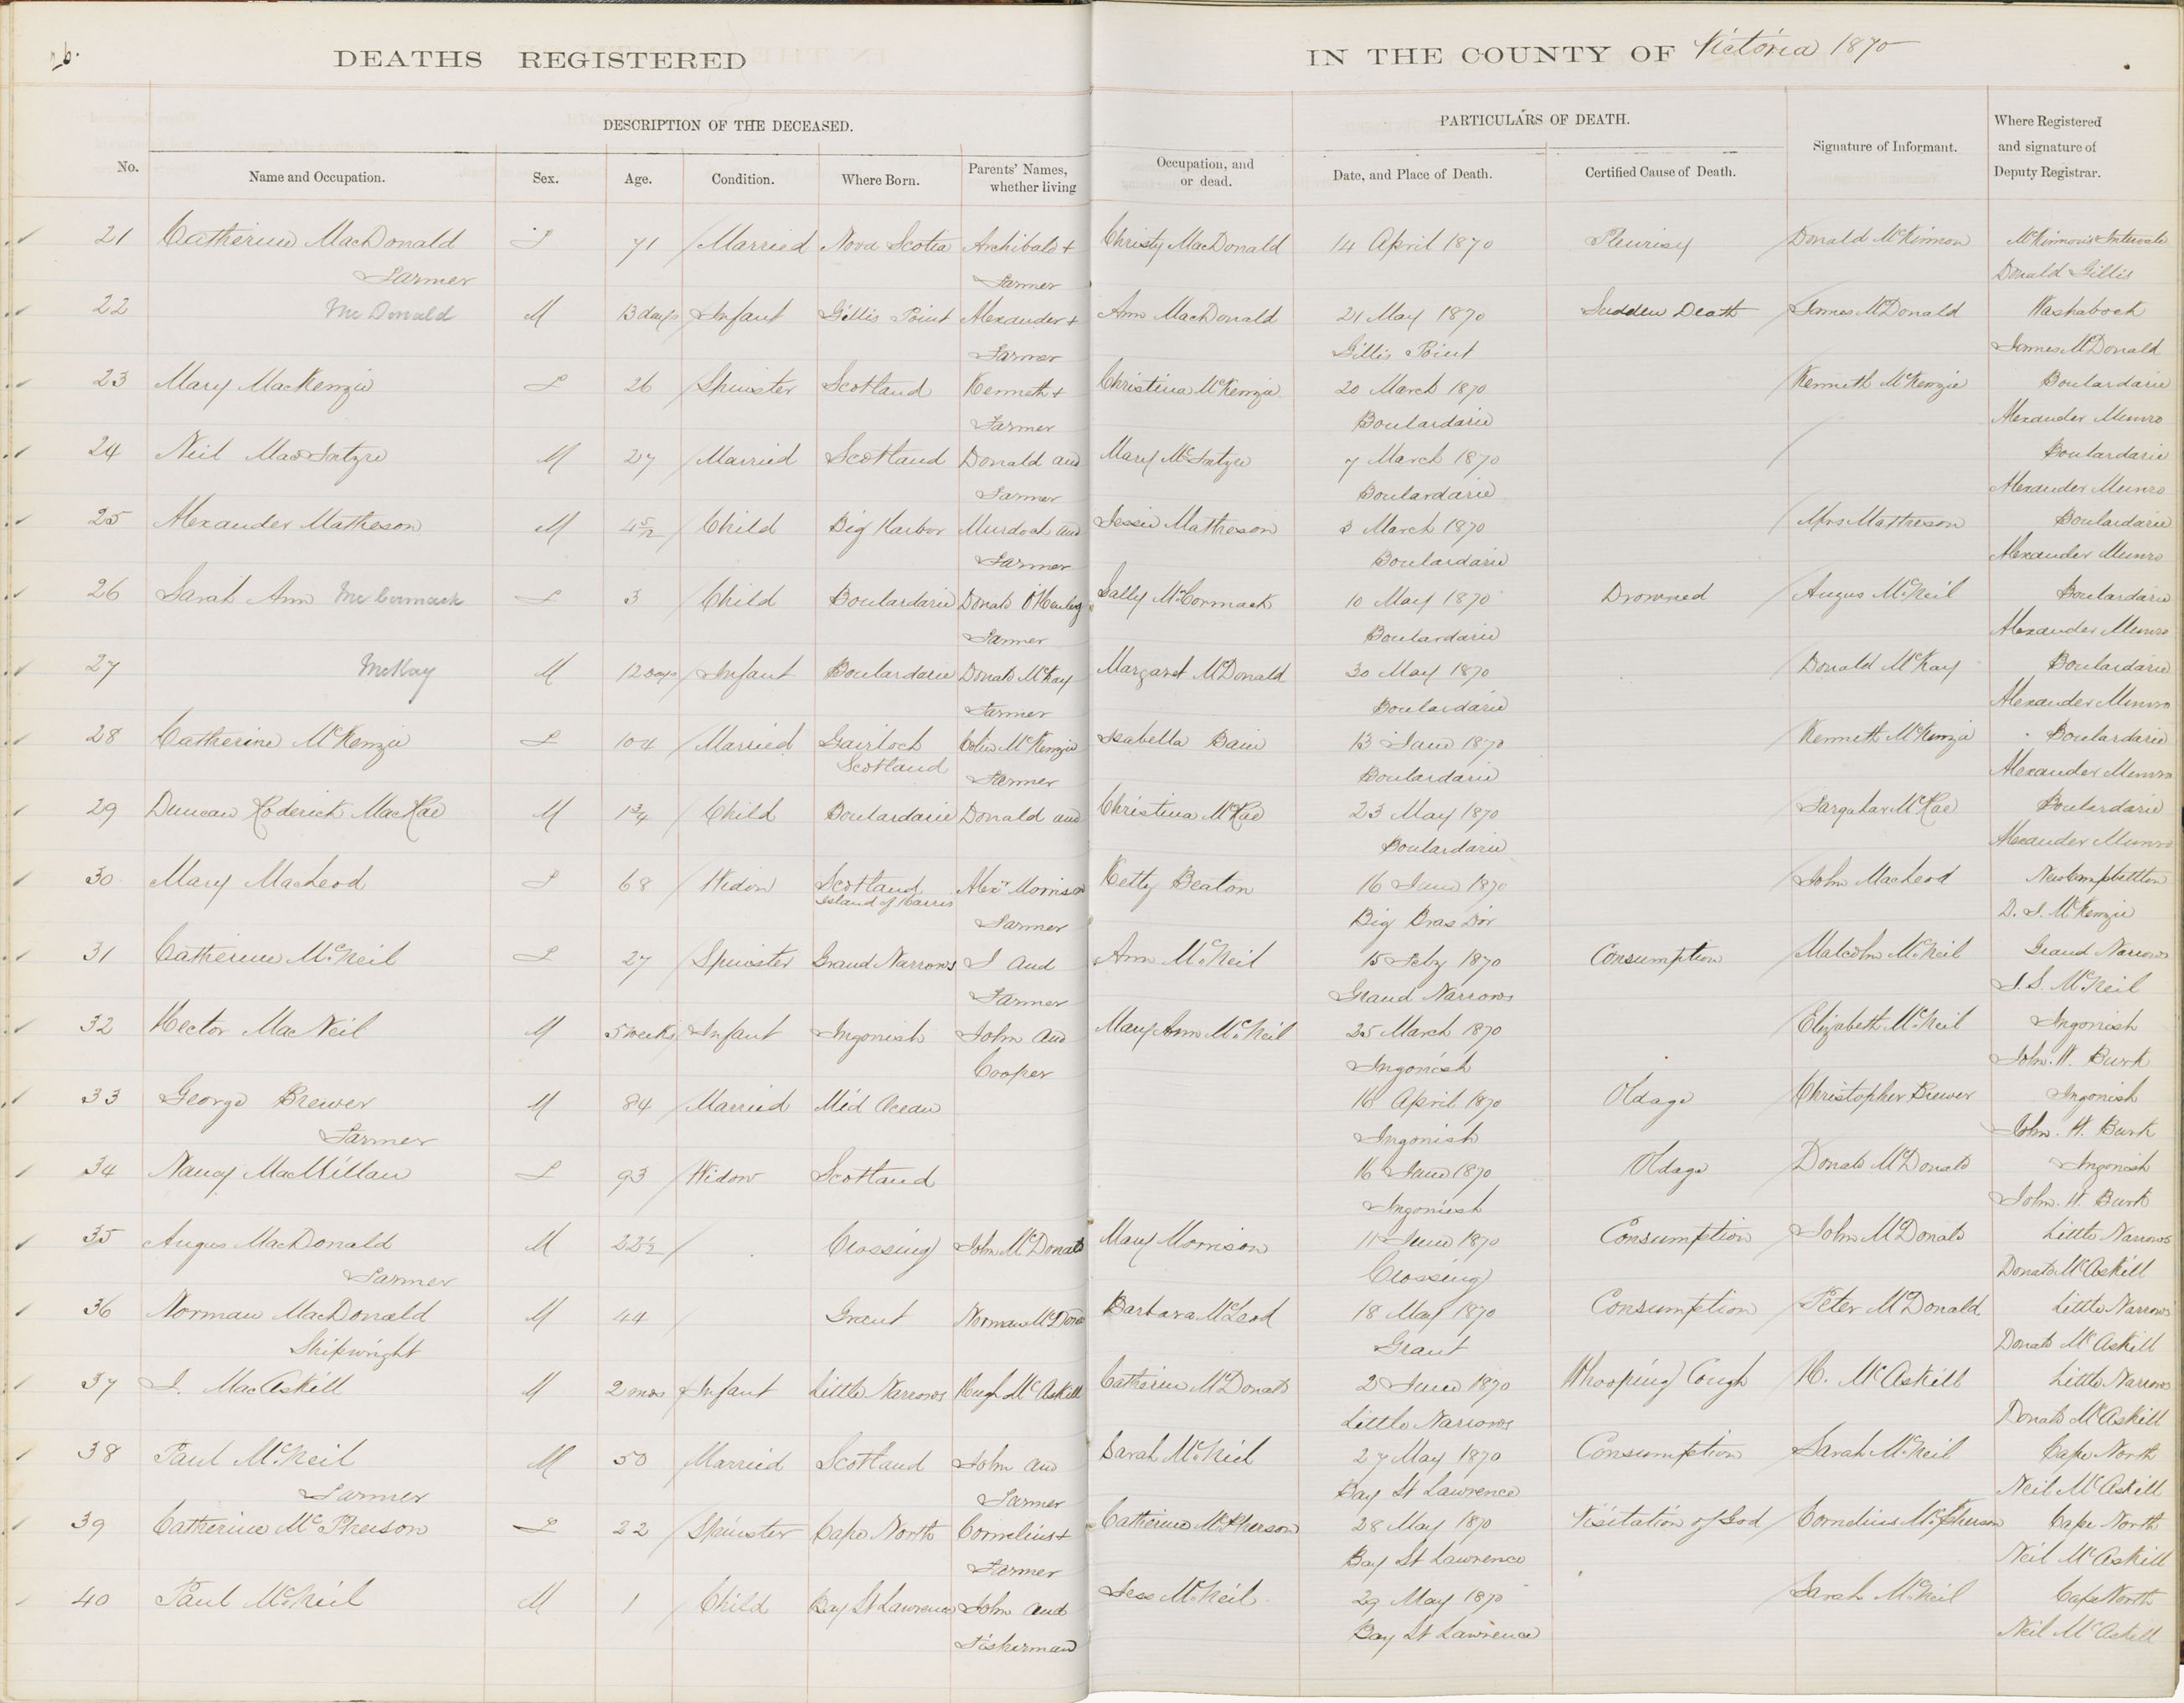 6.
DEATHS REGISTERED IN THE COUNTY OF Victoria 1870
DESCRIPTION OF THE DECEASED. PARTICULARS OF DEATH.
No. Name and Occupation. Sex. Age. Condition. Where Born. Parents' Names, whether living Occupation, and or dead. Date, and Place of Death. Certified Cause of Death. Signature of Informant. Where Registered and signature of Deputy Registrar.
21 Catherine MacDonald F 71 Married Nova Scotia Archibald + Christy MacDonald 14 April 1870 Pleurisy Donald McKinnon McKinnon's Intervale
Farmer Farmer Donald Gillis
22 McDonald M 13 days Infant Gillis Point Alexander + Ann MacDonald 21 May 1870 Sudden Death James McDonald Washabock
Farmer Gillis Point James McDonald
23 Mary MacKenzie F 26 Spinster Scotland Kenneth + Christina McKenzie 20 March 1870 Kenneth McKenzie Boulardarie
Farmer Boulardarie Alexander Munro
24 Neil MacIntyre M 27 Married Scotland Donald and Mary McIntyre 7 March 1870 Boulardarie
Farmer Boulardarie Alexander Munro
25 Alexander Matheson M 4 5/12 Child Big Harbor Murdoch and Jessie Matheson 3 March 1870 Mrs Matheson Boulardarie
Farmer Boulardarie Alexander Munro
26 Sarah Ann McCormack F 3 Child Boulardarie Donald Sally McCormack 10 May 1870 Drowned Angus McNeil Boulardarie
Farmer Boulardarie Alexander Munro
27 McKay M 12 days Infant Boulardarie Donald McKay Margaret McDonald 30 May 1870 Donald McKay Boulardarie
Farmer Boulardarie Alexander Munro
28 Catherine McKenzie F 104 Married Gairloch Colin McKenzie Isabella Bain 13 June 1870 Kenneth McKenzie Boulardarie
Scotland Farmer Boulardarie Alexander Munro
29 Duncan Roderick MacRae M 1 3/4 Child Boulardarie Donald and Christina McRae 23 May 1870 Farquhar McRae Boulardarie
Boulardarie Alexander Munro
30 Mary MacLeod F 68 Widow Scotland Alexr Morrison Ketty Beaton 16 June 1870 John MacLeod New Campbellton
Island of Harris Farmer Big Bras Dor D. J. McKenzie
31 Catherine McNeil F 27 Spinster Grand Narrows J and Ann McNeil 15 Feby 1870 Consumption Malcolm McNeil Grand Narrows
Farmer Grand Narrows J. S. McNeil
32 Hector MacNeil M 5 weeks Infant Ingonish John and Mary Ann McNeil 25 March 1870 Elizabeth McNeil Ingonish
Cooper Ingonish John. W. Burk
33 George Brewer M 84 Married Mid Ocean 16 April 1870 Oldage Christopher Brewer Ingonish
Farmer Ingonish John. W. Burk
34 Nancy MacMillan F 93 Widow Scotland 16 June 1870 Oldage Donald McDonald Ingonish
Ingonish John. W. Burk
35 Angus MacDonald M 22 1/2 Crossing John McDonald Mary Morrison 11 June 1870 Consumption John McDonald Little Narrows
Farmer Crossing Donald McAskill
36 Norman MacDonald M 44 Grant Norman McDona Barbara McLeod 18 May 1870 Consumption Peter McDonald Little Narrows
Shipwright Grant Donald McAskill
37 J. MacAskill M 2 mos Infant Little Narrows Hugh McAskill Catherine McDonald 2 June 1870 Whooping Cough H. McAskill Little Narrows
Little Narrows Donald McAskill
38 Paul McNeil M 50 Married Scotland John and Sarah McNeil 27 May 1870 Consumption Sarah McNeil Cape North
Farmer Farmer Bay St Lawrence Neil McAskill
39 Catherine McPherson F 22 Spinster Cape North Cornelius + Catherine McPherson 28 May 1870 Visitation of God Cornelius McPherson Cape North
Farmer Bay St Lawrence Neil McAskill
40 Paul McNeil M 1 Child Bay St Lawrence John and Jess McNeil 29 May 1870 Sarah McNeil Cape North
Fisherman Bay St Lawrence Neil McAskill